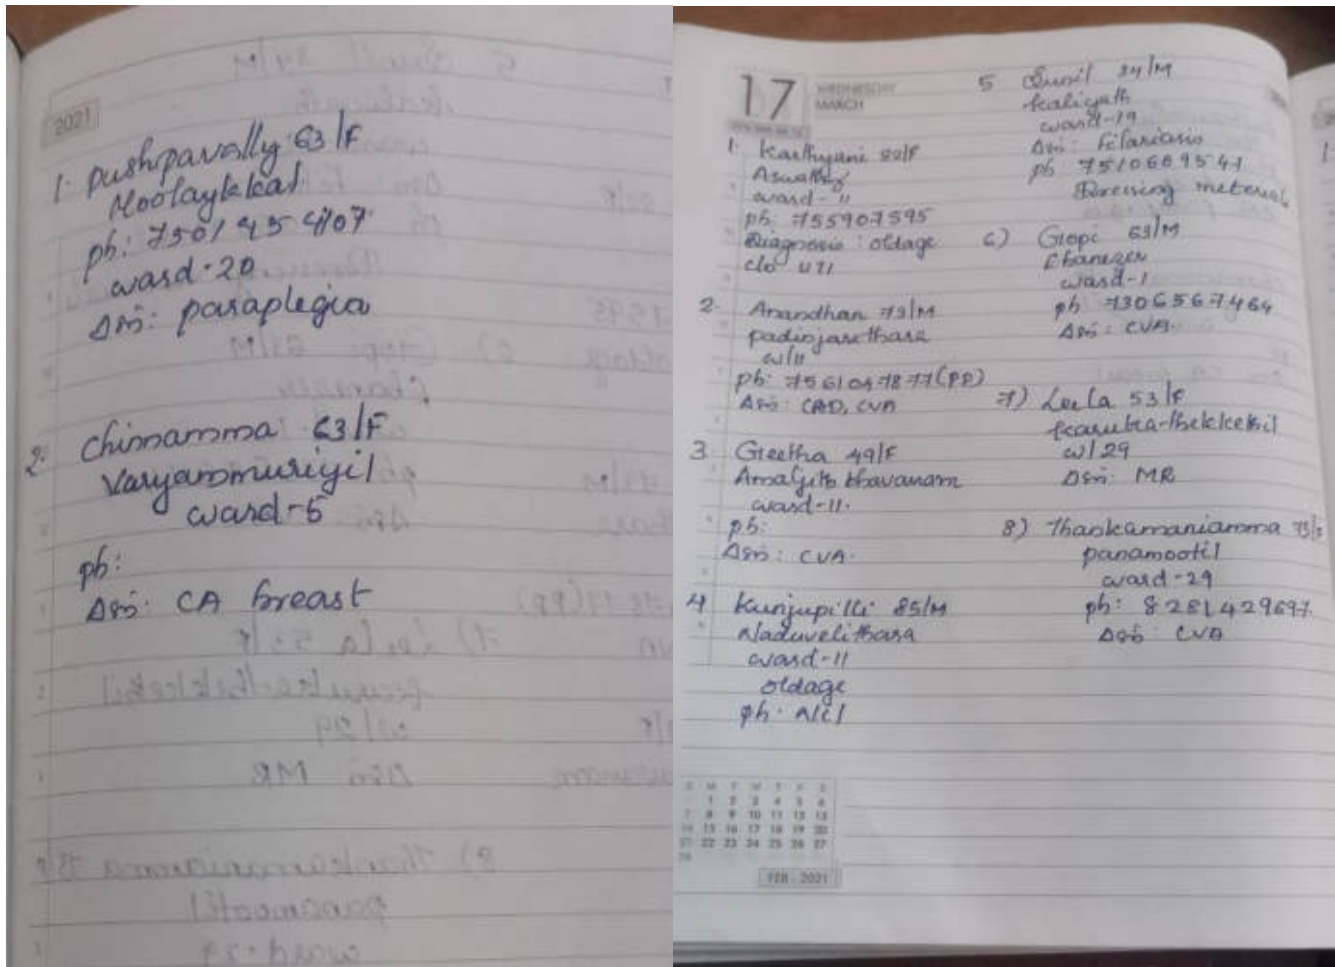 2021
1. pushpavally 63/F
Moolaykkal
ph: 7501454107
ward-20
Dsis: paraplegia
2. Chinnamma 63/F
Varyammuriyil
ward-5
ph:
Dsis: CA breast
17 WEDNESDAY
MARCH
1. Karthyani 80/F
Aswathy
ward-11
ph: 755907595
Diagnosis: oldage
c/o UTI
2. Anandhan 73/M
padinjarethara
w/11
ph: 7561047877(PP)
Dsis: CAD, CVA
3 Geetha 49/F
Amaljith bhavanam
ward-11.
ph:
Dsis: CVA.
4 Kunjupilli 85/M
Naduvelithara
ward-11
oldage
ph. Nil
5 Sunil 34/M
kaliyath
ward-19
Dsis: Filariasis
ph 7510609541
Dressing meterials
6) Gopi 63/M
Ebanezer
ward-1
ph 7306567464
Dsis: CVA.
7) Leela 53/F
w/29
Dsis: MR
8) Thankamaniamma
panamootil
ward-29
ph: 8281429697.
Dsis: CVA
S M T W T F S
1 2 3 4 5 6
7 8 9 10 11 12 13
14 15 16 17 18 19 20
21 22 23 24 25 26 27
28
FEB - 2021